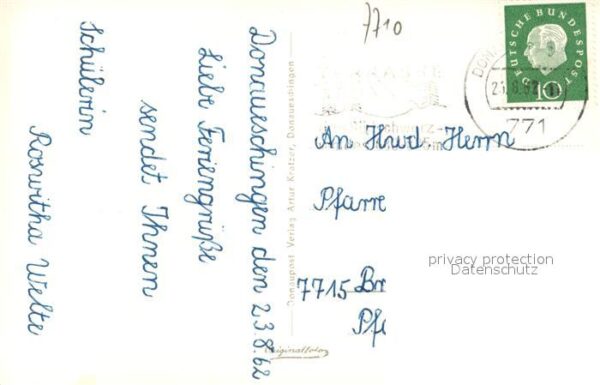 7710
Donaueschingen den 23.8.62
Liebe Feriengrüße
sendet Ihnen
Schülerin
Roswitha Welte
Donaupost Verlag Artur Kratzer, Donaueschingen
Originalfoto
DEUTSCHE BUNDESPOST
10
771
An Hwd. Herrn
Pfarre
7715 Br
Pfa
privacy protection
Datenschutz